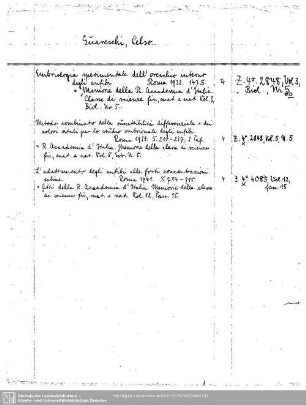 Guareschi, Celso.
Embriologia sperimentale dell'orecchio interno
degli anfibi. Roma 1932. 147 S.
= Memorie della R. Accademia d'Italia,
Classe di scienze fis., mat. e nat. Vol. 3,
Biol. Nr 5.
4 Z. 4°. 2848, Vol. 3,
Biol., Nr 5
Metodo combinato della suscettibilità differenziale e dei
colori vitali per lo studio embrionale degli anfibi
Roma
= R. Accademia d'Italia. Memorie della classe di scienze
fis., mat. e nat. Vol. 5, N. 5.
4 Z. 4°. 2848, Vol. 5, N. 5
L'adattamento degli anfibi alle forti concentrazioni
saline. Roma 1941. S.
= Atti della R. Accademia d'Italia. Memorie della classe
di scienze fis., mat. e nat. Vol. 12, Fasc. 15.
4 Z. 4°. 4085, Vol. 12,
Fasc. 15
Sächsische Landesbibliothek -
Staats- und Universitätsbibliothek Dresden